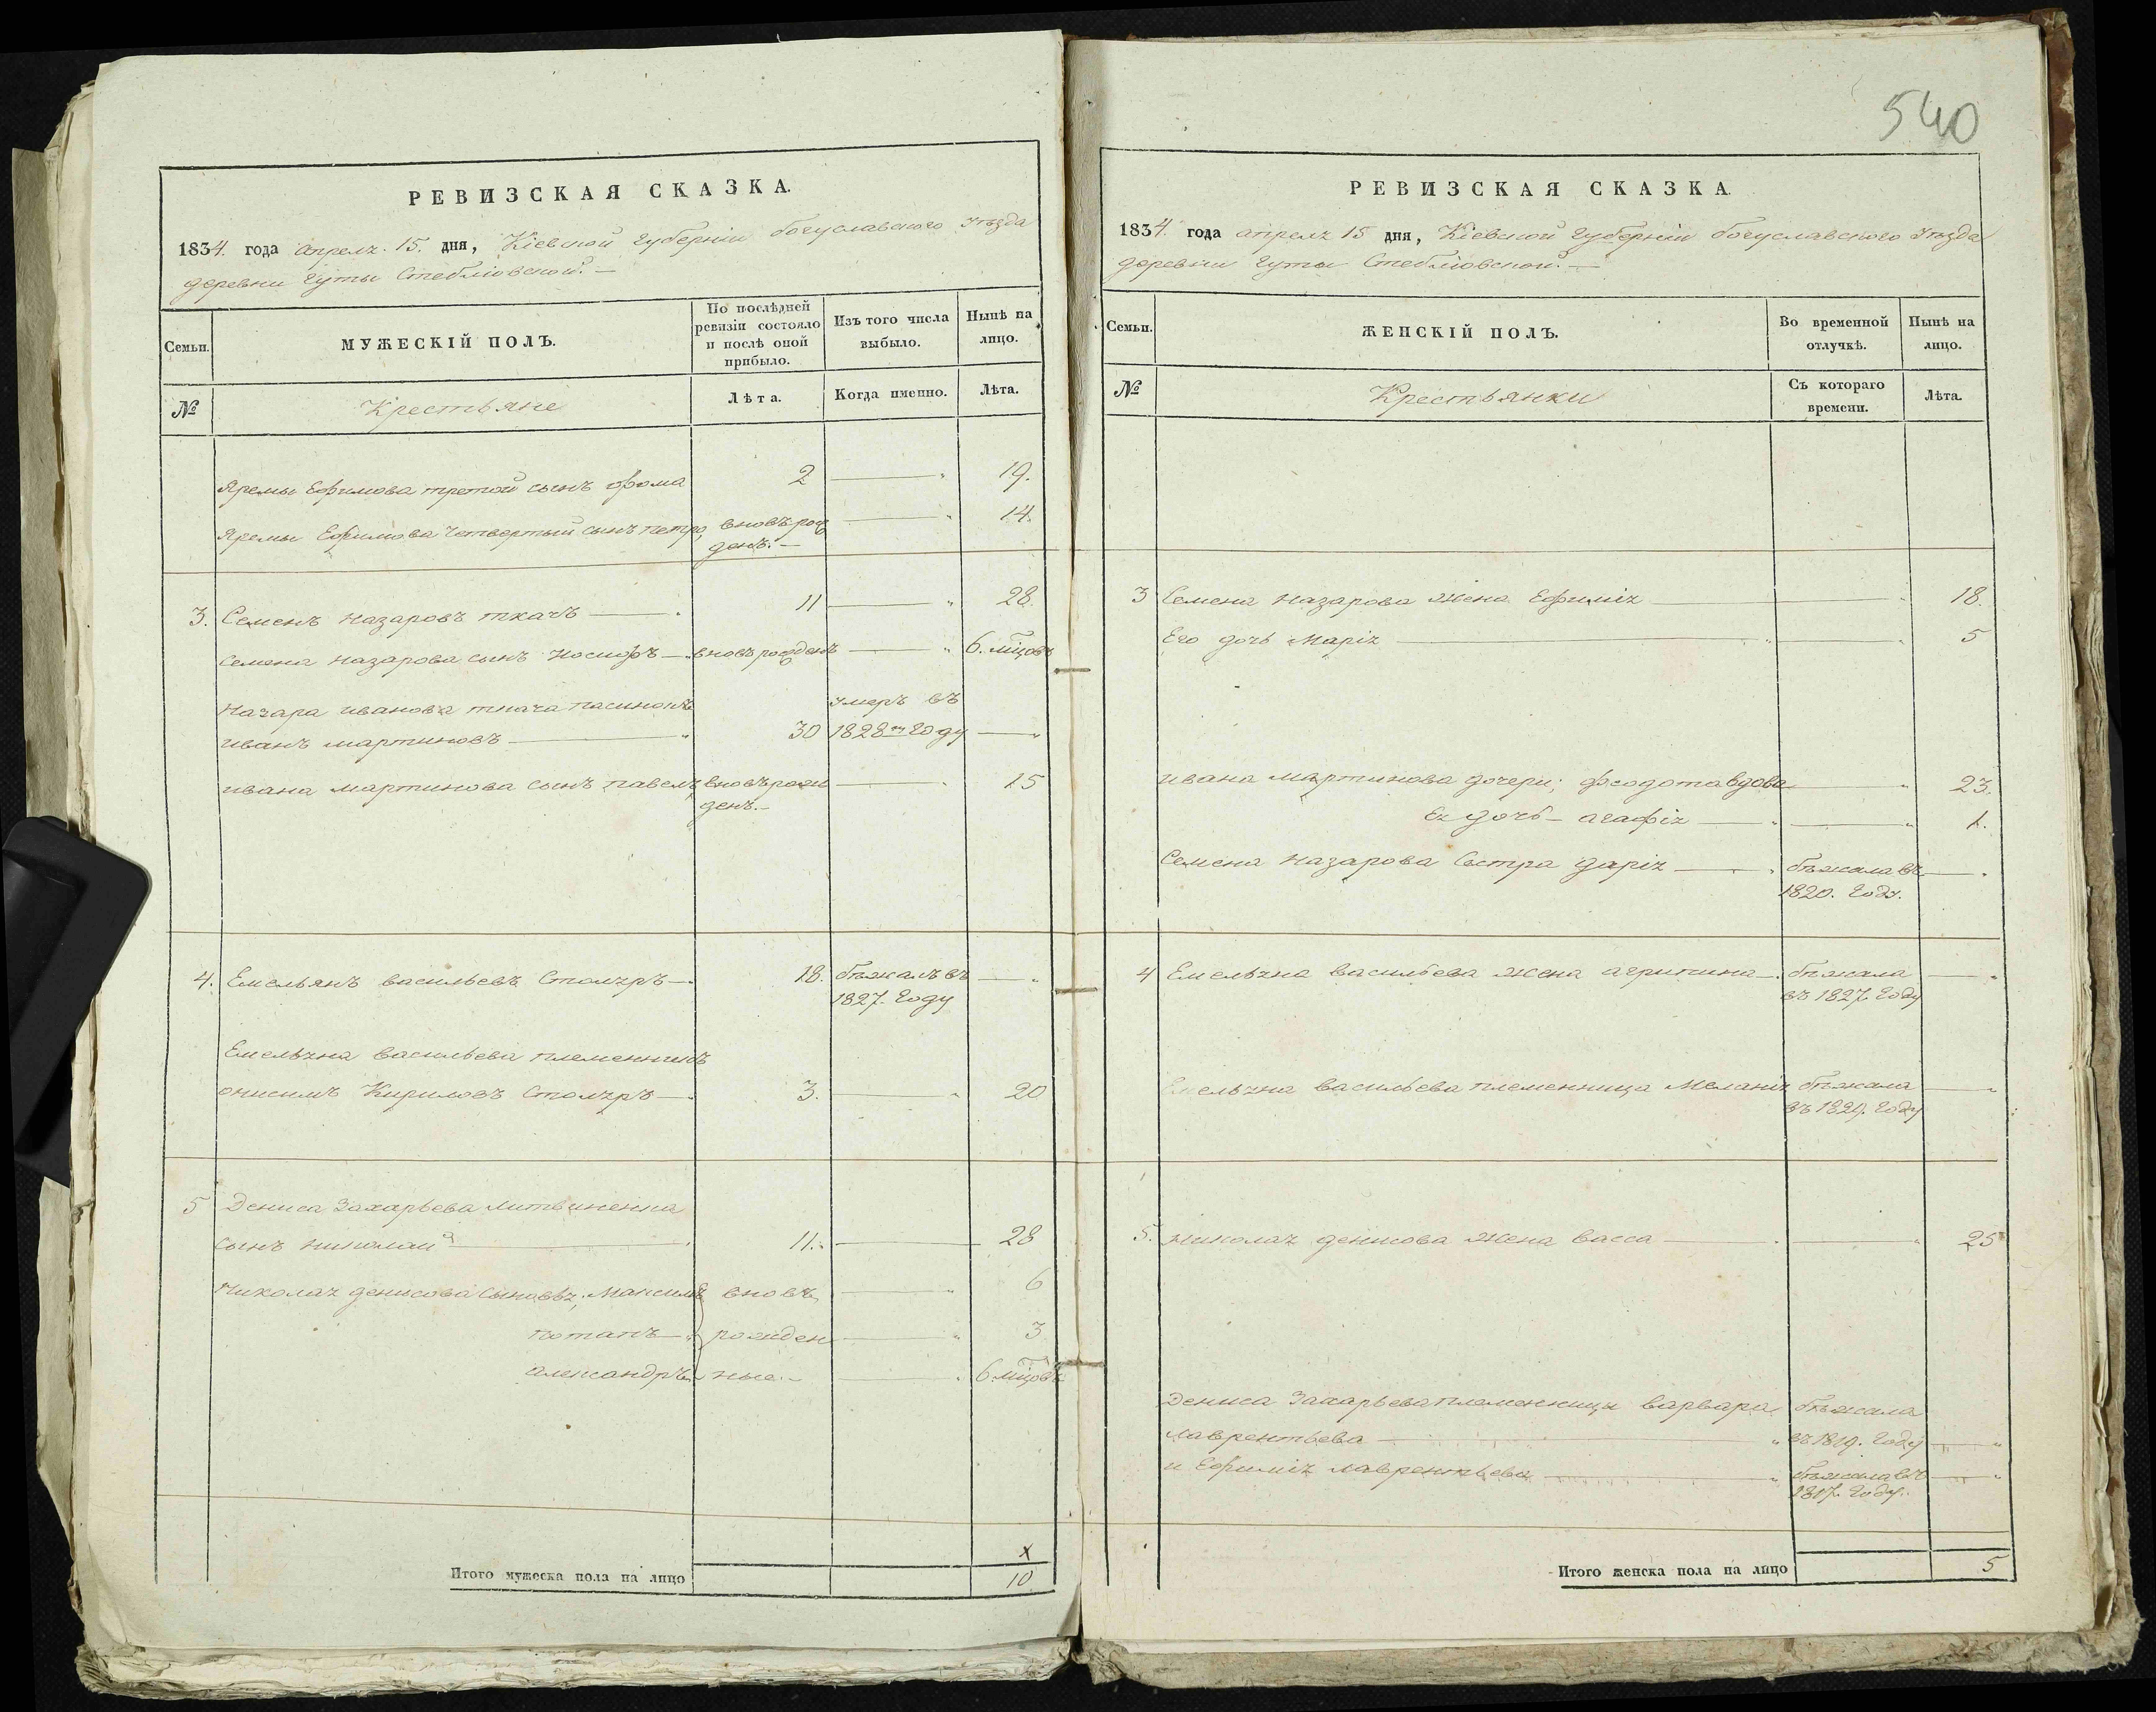 РЕВИЗСКАЯ СКАЗКА.
1834. года Апреля. 15. дня, Кіевской Губерніи Богуславского Уѣзда
деревни Гуты Стеблiовской. —
Семьи. МУЖЕСКІЙ ПОЛЪ. По послѣдней ревизіи состояло и послѣ оной прибыло. Изъ того числа выбыло. Нынѣ на лицо.
№ Крестьяне Лѣта. Когда именно. Лѣта.
Яремы Ефимова третой сынъ Фома 2 — 19.
Яремы Ефимова Четвертый сынъ Петро, вновь рож — 14.
денъ. —
3. Семенъ Назаровъ ткачъ — 11 — 28.
Семена Назарова сынъ Иосифъ — вновь рожденъ — 6. мцовъ
Назара Иванова ткача пасинокъ умеръ въ
Иванъ Мартиновъ — 30 1828м Году —
Ивана Мартинова сынъ Павелъ, вновь рож — 15
денъ. —
4. Емельянъ Васильевъ Столяръ — 18. бѣжалъ въ —
1827. Году
Емельяна Васильева племенникъ
Онисимъ Кириловъ Столяръ — 3. — 20
5 Дениса Захарьева Литвиненка
сынъ Николай — 11. — 28
Николая Денисова Сыновья; Максимъ вновь — 6
Потапъ — рожден — 3
Александръ ные. — — 6. мцовъ
Итого мужеска пола на лицо х 10.
540
РЕВИЗСКАЯ СКАЗКА.
1834. года апреля 15 дня, Кіевской Губерніи Богуславского Уѣзда
деревни Гуты Стеблiовской. —
Семьи. ЖЕНСКІЙ ПОЛЪ. Во временной отлучкѣ. Нынѣ на лицо.
№ Крестьянки Съ котораго времени. Лѣта.
3 Семена Назарова жена Ефимія — 18.
Его дочь Марія — 5
Ивана Мартинова дочери; Феодота вдова — 23.
Ея дочь — Агафія — 1.
Семена Назарова Сестра Дарія — бѣжала въ —
1820. Году.
4 Емельяна Васильева жена Агрипина — бѣжала —
въ 1827. Году
Емельяна Васильева племенница Меланія бѣжала —
въ 1829. Году
5. Николая Денисова жена Васса — 25
Дениса Захарьева племенницы Варвара бѣжала
Лаврентьева — въ 1819. Году —
и Ефимія Лаврентьева — бѣжала въ —
1817. Году.
Итого женска пола на лицо 5